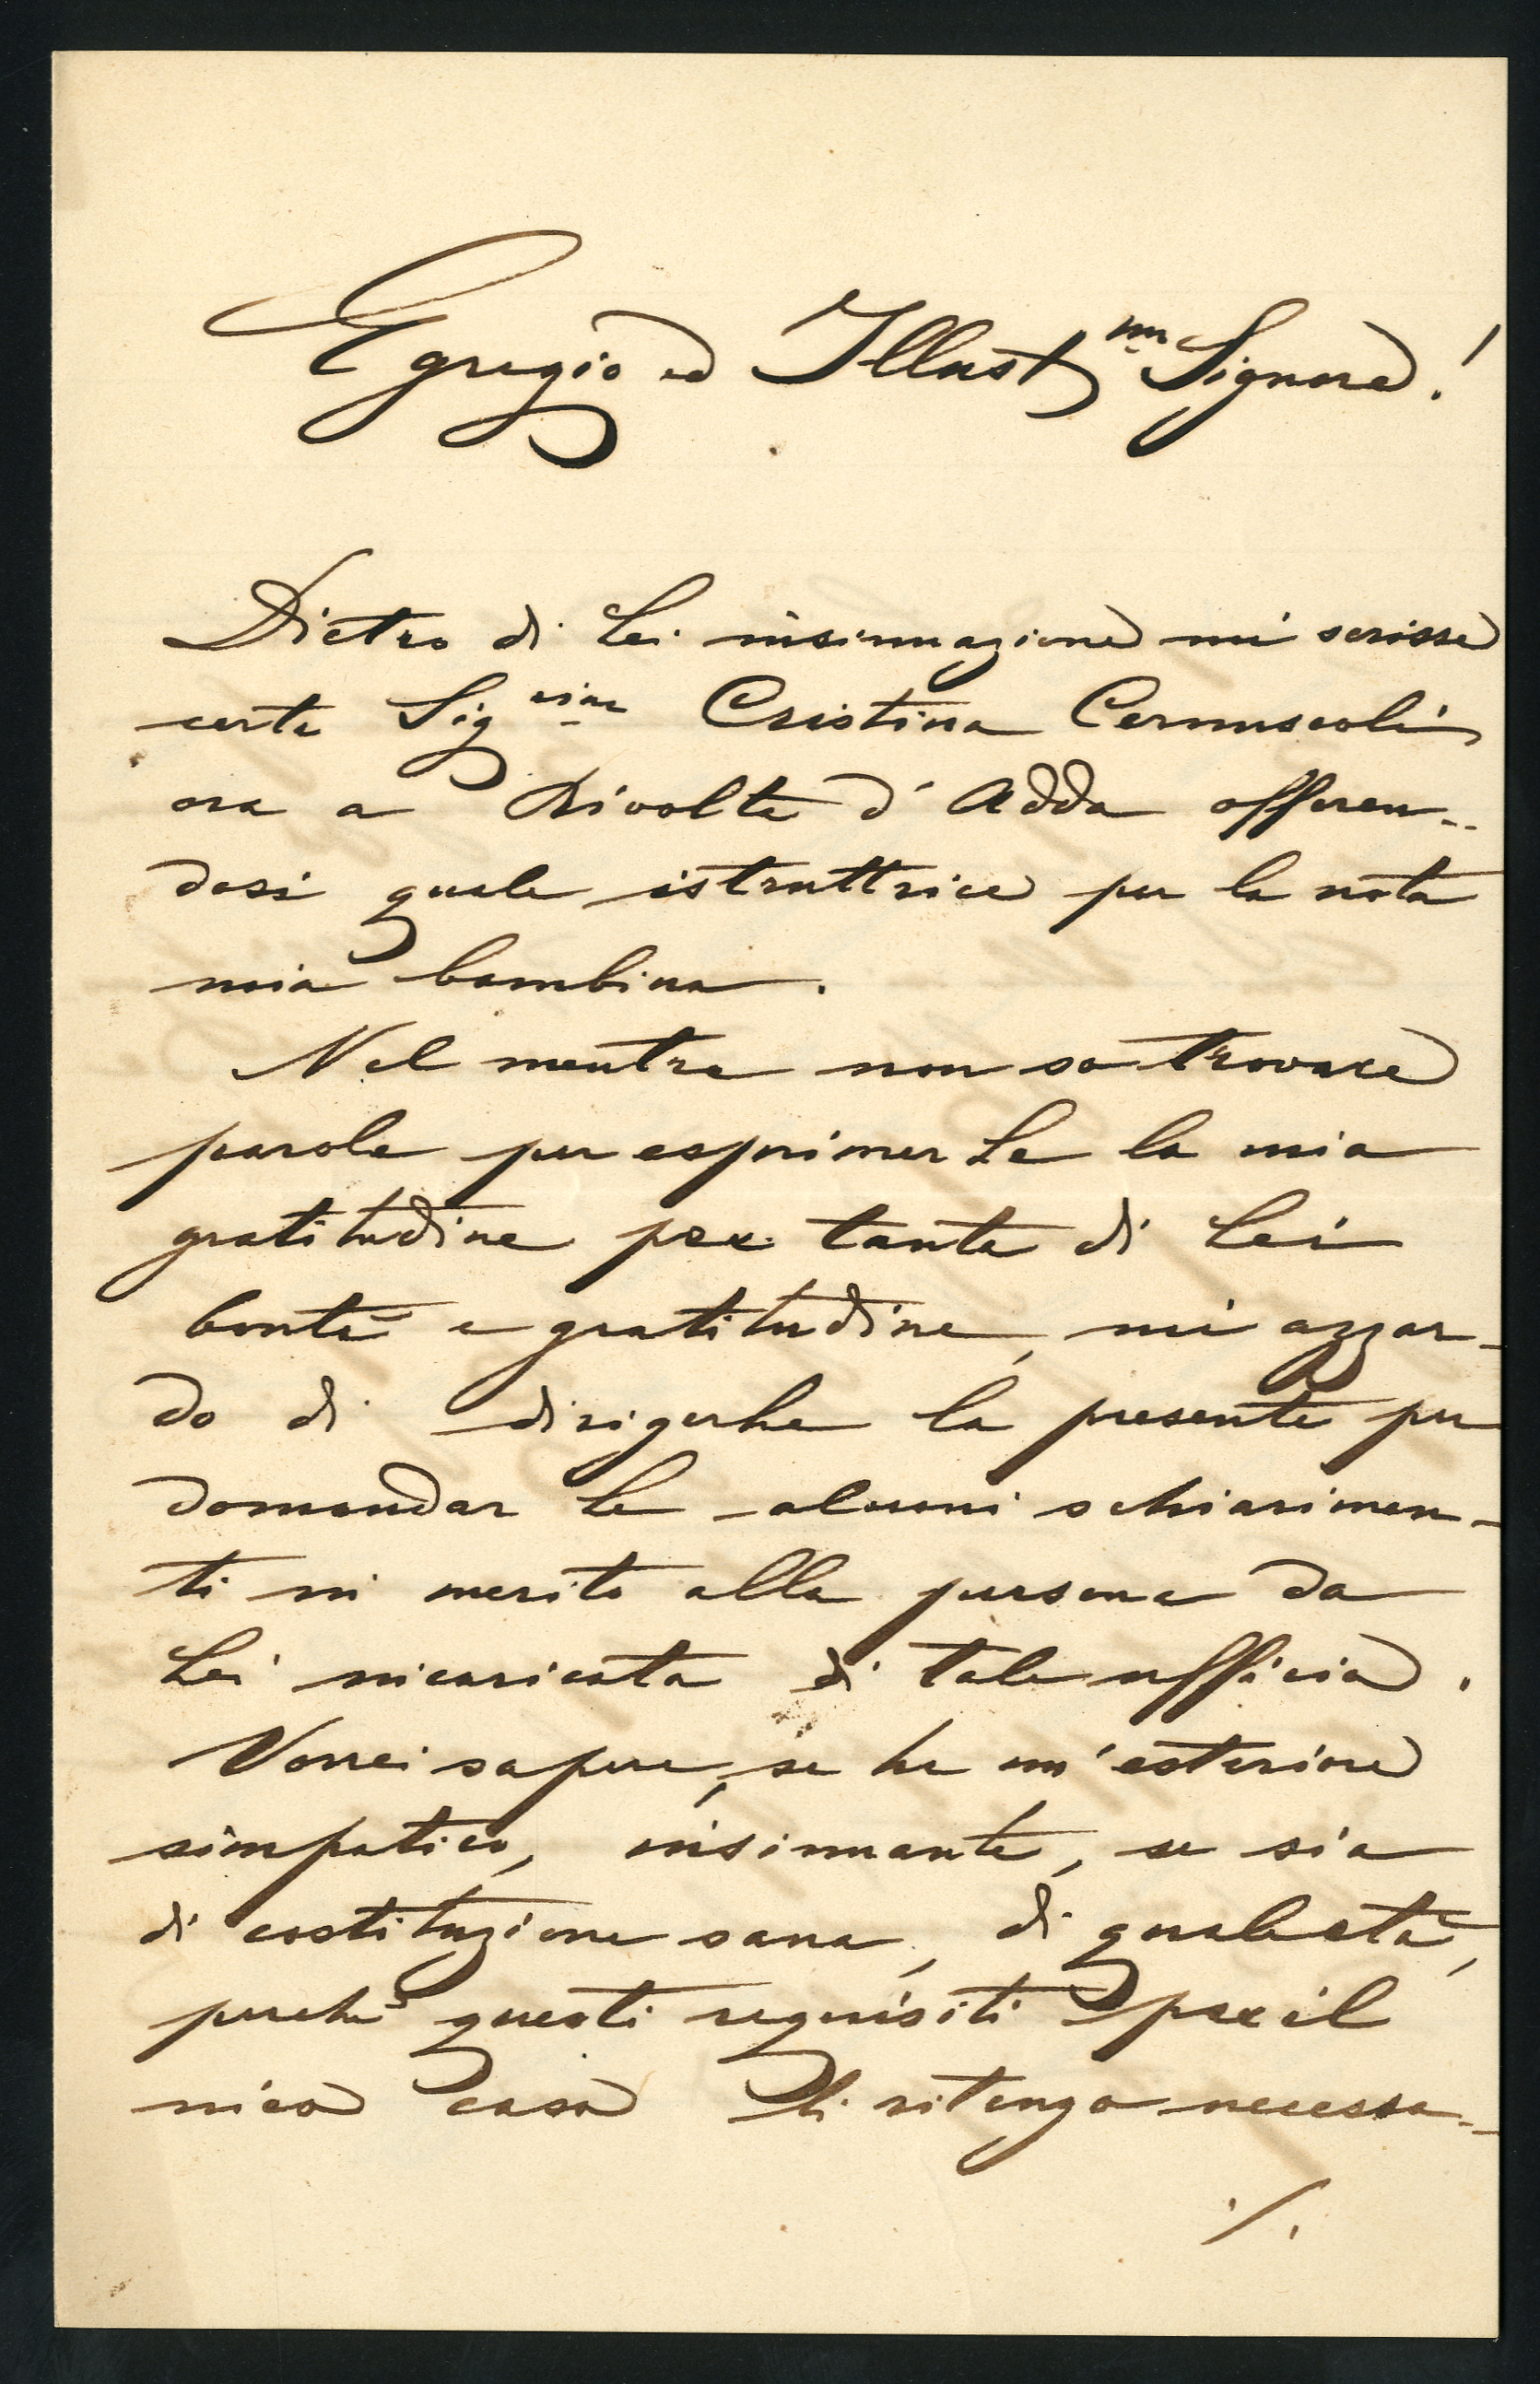 Egregio ed Illust.mo Signore!
Dietro di Lei insinuazione mi scrisse
certa Sig.rina Cristina Cernuscoli
ora a Rivolta d'Adda offeren-
dosi quale istruttrice per la nota
mia bambina.
Nel mentre non so trovare
parole per esprimerLe la mia
gratitudine per tanta di Lei
bontà e gratitudine, mi azzar-
do di dirigerLe la presente per
domandarLe alcuni schiarimen-
ti in merito alla persona da
Lei incaricata di tale ufficio.
Vorrei sapere, se ha un'esteriore
simpatico, insinuante, se sia
di costituzione sana, di quale età,
perchè questi requisiti per il
mio caso li ritengo necessa-
./.